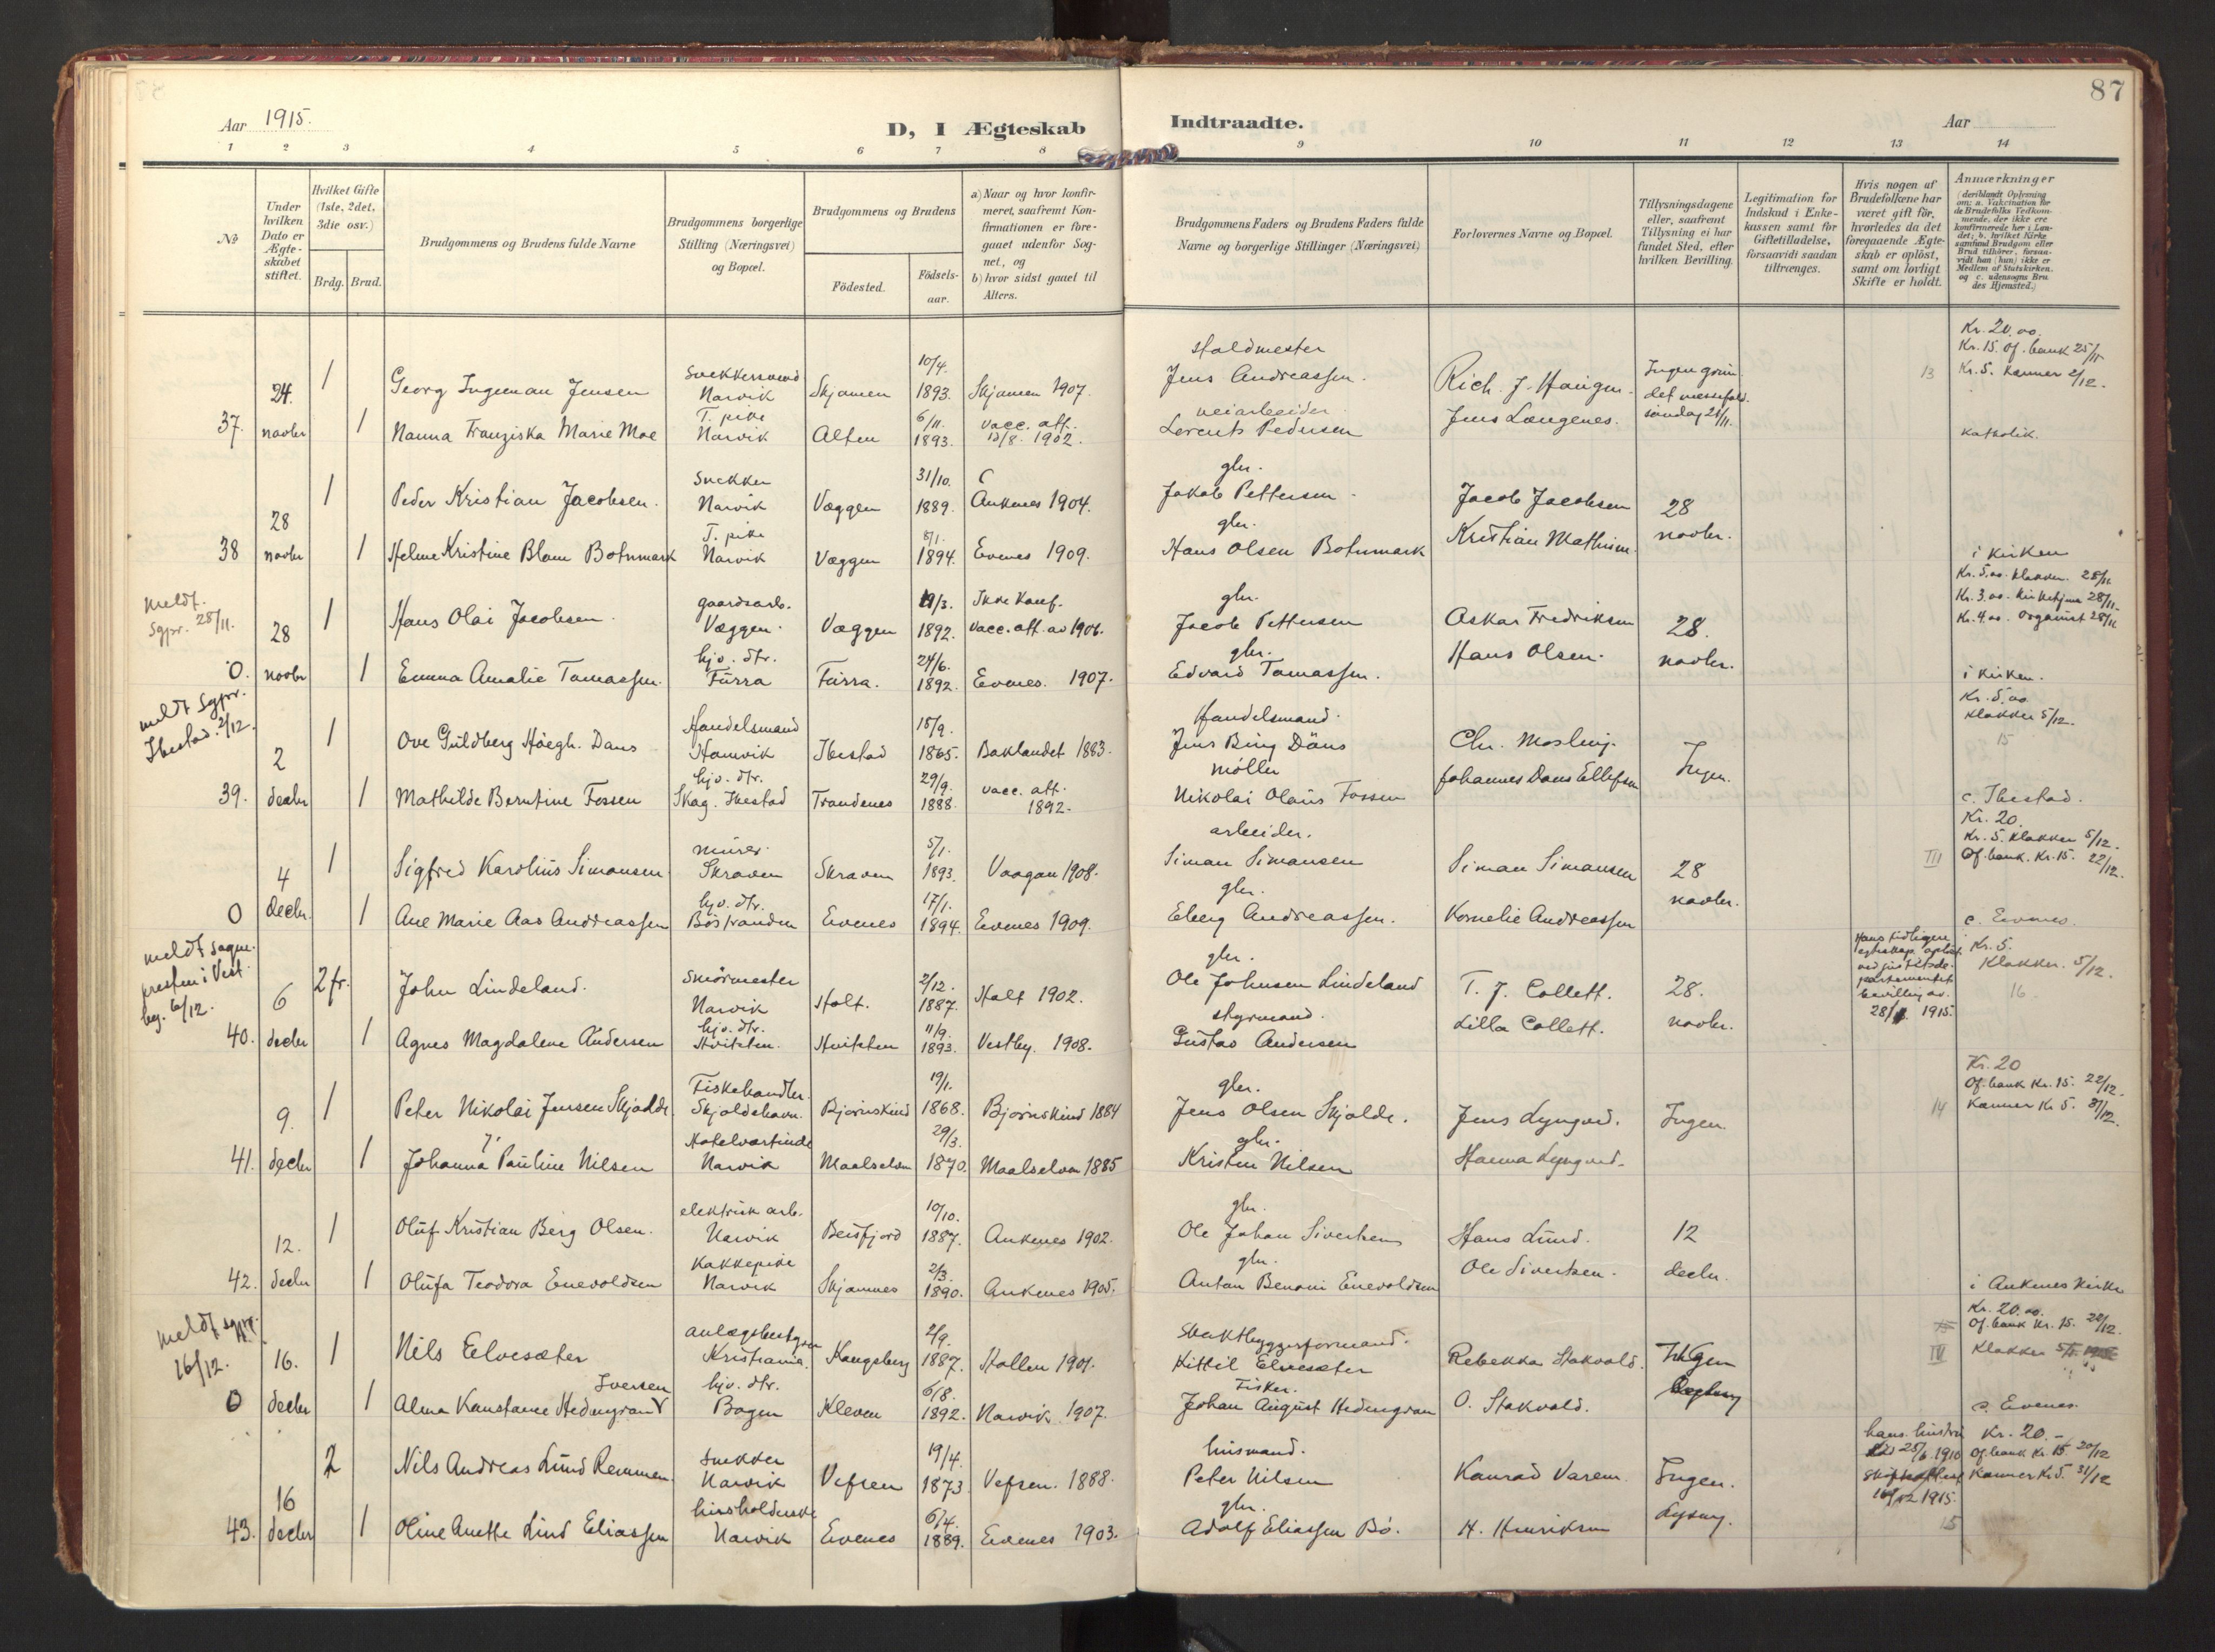 87
Aar 1915.
D, I Ægteskab Indtraadte.
Aar
1 2 3 4 5 6 7 8 9 10 11 12 13 14
No
Under hvilken Dato er Ægteskabet stiftet.
Hvilket Gifte (1ste, 2det, 3die osv.)
Brdg. Brud.
Brudgommens og Brudens fulde Navne
Brudgommens borgerlige Stilling (Næringsvei) og Bopæl.
Brudgommens og Brudens
Födested.
Födselsaar.
a) Naar og hvor konfirmeret, saafremt Konfirmationen er foregaaet udenfor Sognet, og
b) hvor sidst gaaet til Alters.
Brudgommens Faders og Brudens Faders fulde Navne og borgerlige Stillinger (Næringsvei)
Forlovernes Navne og Bopæl.
Tillysningsdagene eller, saafremt Tillysning ei har fundet Sted, efter hvilken Bevilling.
Legitimation for Indskud i Enkekassen samt for Giftetilladelse, forsaavidt saadan tiltrænges.
Hvis nogen af Brudefolkene har været gift för, hvorledes da det foregaaende Ægteskab er oplöst, samt om lovligt Skifte er holdt.
Anmærkninger
(deriblandt Oplysning om: a. Vakcination för de Brudefolks Vedkommende, der ikke ere konfirmerede her i Landet; b. hvilket Kirkesamfund Brudgom eller Brud tilhörer, forsaavidt han (hun) ikke er Medlem af Statskirken. og c. udensogns Brudes Hjemsted.)
37. 24. novbr
1 Georg Ingeman Jensen Narvik Skjomen 10/4. 1893. Skjomen 1907.
Staldmester Jens Andreassen. Rich. J. Haugen.
søndag 21/11.
Kr. 20.00.
Kr. 15. Of. bank 25/11
Kr. 5. 2/12.
13
1 Nanna Franziska Marie Moe T. pike Narvik Alten 6/11. 1893. vacc. att. 1902.
veiarbeider Lorents Pedersen Jens Langenes.
katholik.
38 28 novbr
1 Peder Kristian Jacobsen. Snekker Narvik Væggen 31/10. 1889. Ankenes 1904.
gbr. Jakob Pettersen Jacob Jacobsen 28 novbr.
1 Helene Kristine Blom Botnmark T. pike Narvik Væggen 8/1. 1894. Evenes 1909.
gbr. Hans Olsen Botnmark Kristian Mathisen
i kirken
Kr. 5.00. klokker. 28/11
Kr. 3.00. kirketjener 28/11
Kr. 4.00. organist 28/11
meldt. Sgpr. 28/11.
0. 28 novbr
1 Hans Olai Jacobsen. gaardsarb. Væggen. Væggen 19/3. 1892. Ikke konf. vacc. att. av 1906.
gbr. Jacob Pettersen Oskar Fredriksen 28. novbr.
1 Emma Amalie Tomassen. hjv. dtr. Furra Furra. 24/6. 1892. Evenes. 1907.
gbr. Edvard Tomassen. Hans Olsen.
i kirken.
Kr. 5.00
klokker 5/12.
15
meldt Sgpr. Ibestad. 2/12.
39. 2 decbr
1 Ove Guldberg Höegh. Dans Handelsmand Hamvik Ibestad 18/9. 1865. Baklandet 1883.
Handelsmand. Jens Bing Däns Chr. Mosling. Ingen.
1 Mathilde Berntine Fossen hjv. dtr. Skog. Ibestad Trondenes 29/9. 1888. vacc. att. 1892.
möller Nikolai Olaus Fossen Johannes Dons Ellefsen
c. Ibestad.
Kr. 20.
Kr. 5. klokker 5/12.
Of. bank. Kr. 15. 22/12.
III
0 4 decbr.
1 Sigfred Karolius Simonsen murer. Skroven Skroven 5/1. 1893. Vaagan 1908.
arbeider. Simon Simonsen Simon Simonsen 28 novbr.
1 Ane Marie Aas Andreassen hjv. dtr. Böstranden Evenes 17/1. 1894. Evenes 1909.
gbr. Eberg Andreassen. Kornelie Andreassen
c. Evenes.
meldt sogne-
presten i Vest-
by. 6/12.
40. 6 decbr
2 fr. John Lindeland. Smörmester Narvik Holt. 2/12. 1887. Holt 1902.
gbr. Ole Johnsen Lindeland T. J. Collett. 28. novbr.
1 Agnes Magdalene Andersen hjv. dtr. Hvitsten. Hvitsten 11/9. 1893. Vestby. 1908.
styrmand. Gustav Andersen Lilla Collett.
Hans tidligere
egteskap oplöst
ved justitsde-
partementets
bevilling av.
1915.
Kr. 5.
Klokker. 5/12.
16
41. 9. decbr
1 Peter Nikolai Jensen Skjolde. Fiskehandler. Skjoldehavn. Bjørnskind 19/1. 1868. Bjørnskind 1884
gbr. Jens Olsen Skjolde. Jens Lyngved. Ingen
1 Johanna Pauline Nilsen Hotelværtinde Narvik Maalselven 29/3. 1870. Maalselven 1885
gbr. Kristen Nilsen Hanna Lyngved.
Kr. 20
Of. bank Kr. 15. 22/12.
Kr. 5. 31/12.
14
42. 12. decbr
1 Oluf Kristian Berg Olsen. elektrisk arb. Narvik Beisfjord 10/10. 1887. Ankenes 1902.
gbr. Ole Johan Sivertsen Hans Lund. 12 decbr.
1 Olufa Teodora Enevoldsen Kokkepike Narvik Skjomnes 2/3. 1890. Ankenes 1905.
gbr. Anton Benoni Enevoldsen Ole Sivertsen.
i Ankenes kirke
Kr. 20.00.
Of. bank Kr. 15. 22/12.
Klokker
IV
meldt sgpr.
16/12.
0 16. decbr
1 Nils Eelvesæter Kristiania. Kongsberg 2/9. 1887. Hollen 1901.
Kittil Elvesæter Rebekka Stokvold. Ingen
1 Alma Konstance Hedengran Iversen hjv. dtr. Bogen Kleven 6/8. 1892. Narvik 1907.
Fisker. Johan August Hedengran O. Stokvold.
c. Evenes.
43. 16 decbr
2 Nils Andreas Lund Remmen. Snekker Narvik Vefsen 19/4. 1873 Vefsen. 1888.
husmand. Peter Nilsen Konrad Varem. Ingen. Lysny.
1 Oline Anette Lind Eliassen husholderske Narvik Evenes 6/4. 1889. Evenes 1903.
gbr. Adolf Eliassen Bö. H. Henriksen
hans hustru
25/6 1910
1915.
15
Kr. 20.-
Of. bank Kr. 15. 20/12
Kr. 5. 31/12